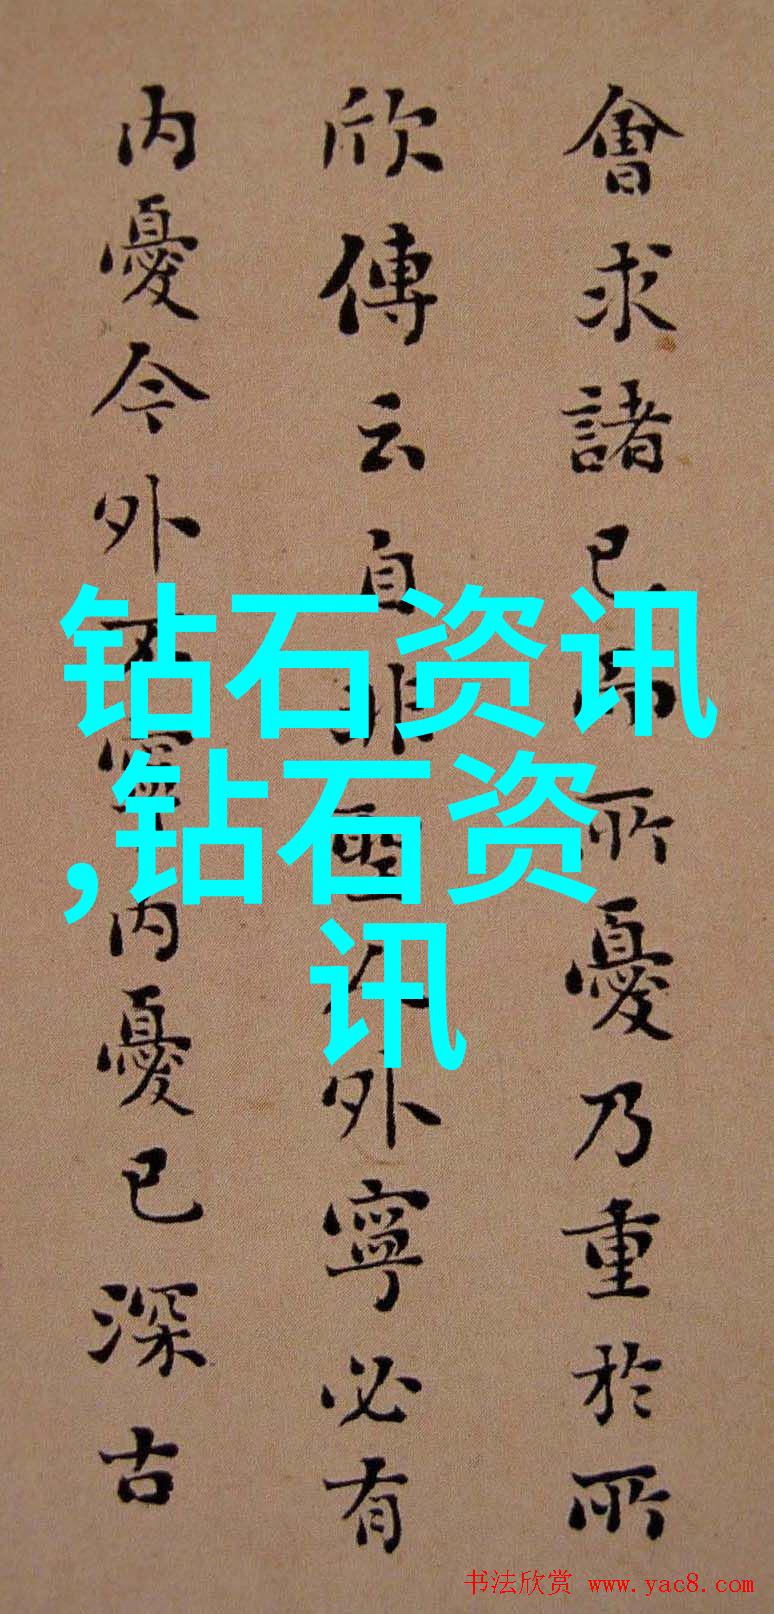 會求諸己而所憂乃重於所
欣傳云自非聖人外寧必有
内憂今外不寧内憂已深古
钻石资讯
,钻石资
讯
书法欣赏 www.yac8.com